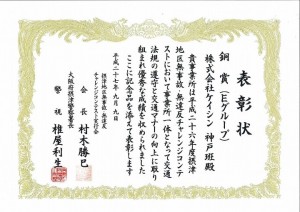 表彰状
銅賞(Eグループ)
株式会社ケイシン 神戸班殿
貴事業所は平成二十六年度摂津
地区無事故・無違反チャレンジコンテ
ストにおいて事業所一体となって交通
法規の遵守と交通マナーの向上に取り
組まれ優秀な成績を収められました
ここに記念品を添えて表彰します
平成二十七年九月九日
摂津地区無事故・無違反
チャレンジコンテスト実行会
会長 村木勝巳
大阪府摂津警察署長
警視 椎屋利生